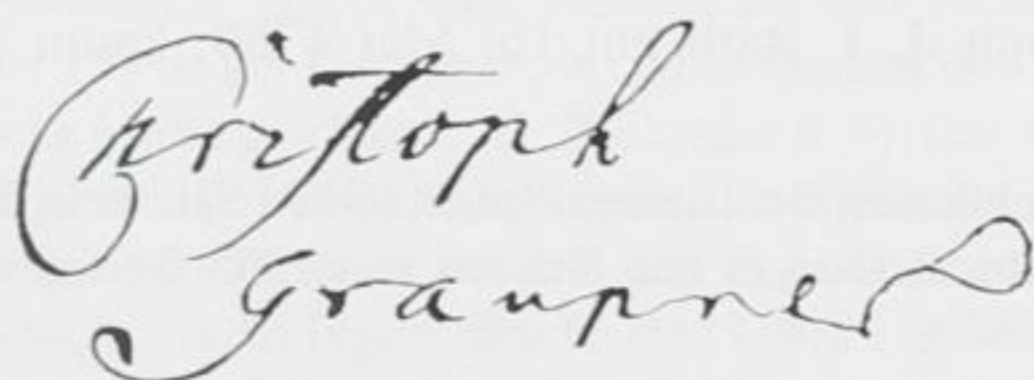 Christoph
Graupner